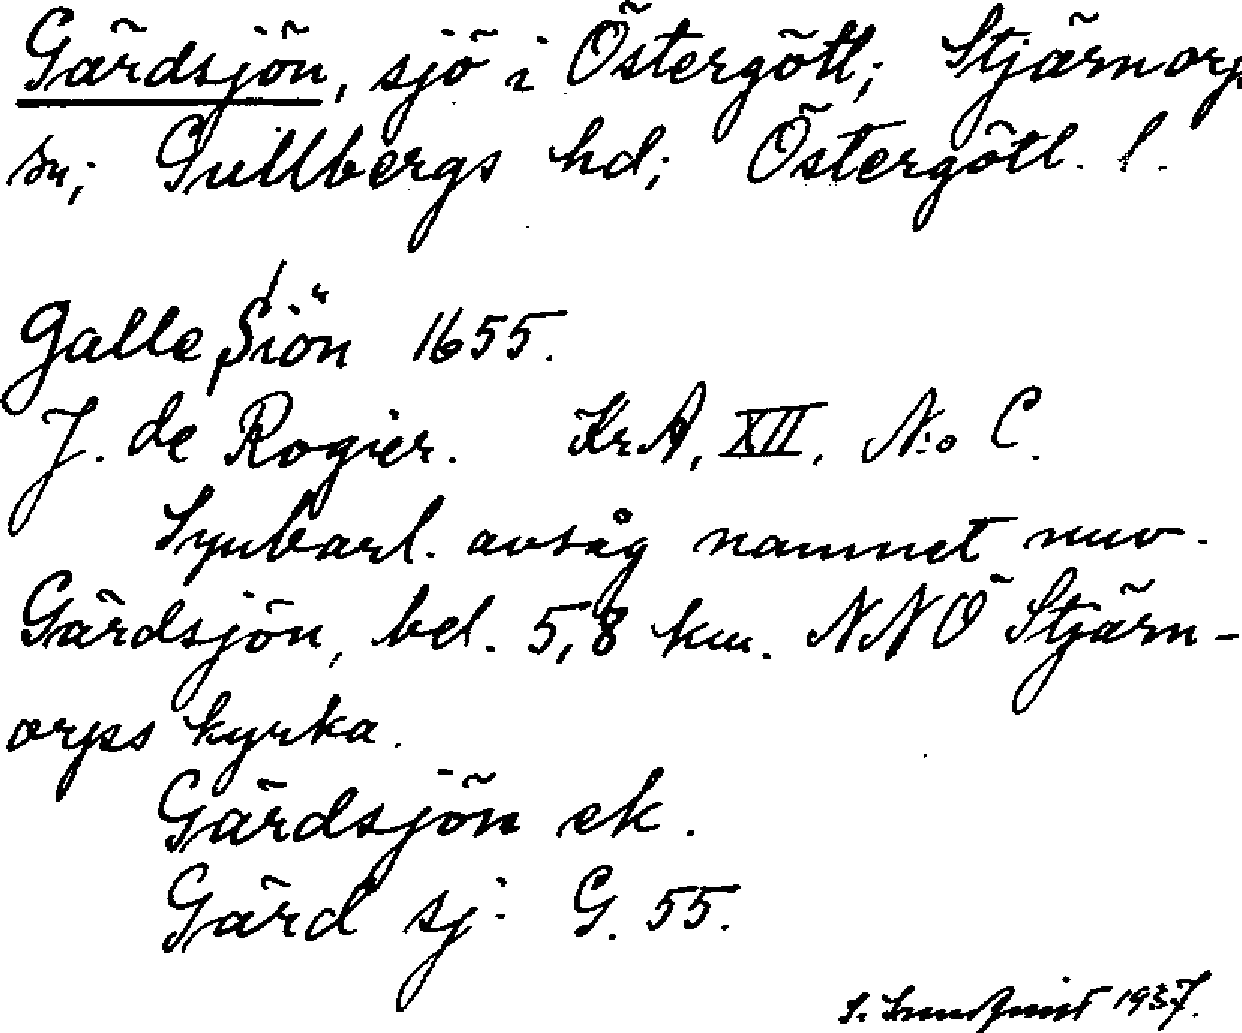 Gärdsjön, sjö i Östergötl; Stjärnorps
sn; Gullbergs hd; Östergötl. l.
Galle Siön 1655.
J. de Rogier. KrA, XII, N:o C.
Synbarl. avsåg namnet nuv.
Gärdsjön, bel. 5,8 km. NNÖ Stjärn-
orps kyrka.
Gärdsjön ek.
Gärd sj. G. 55.
S. 1937.